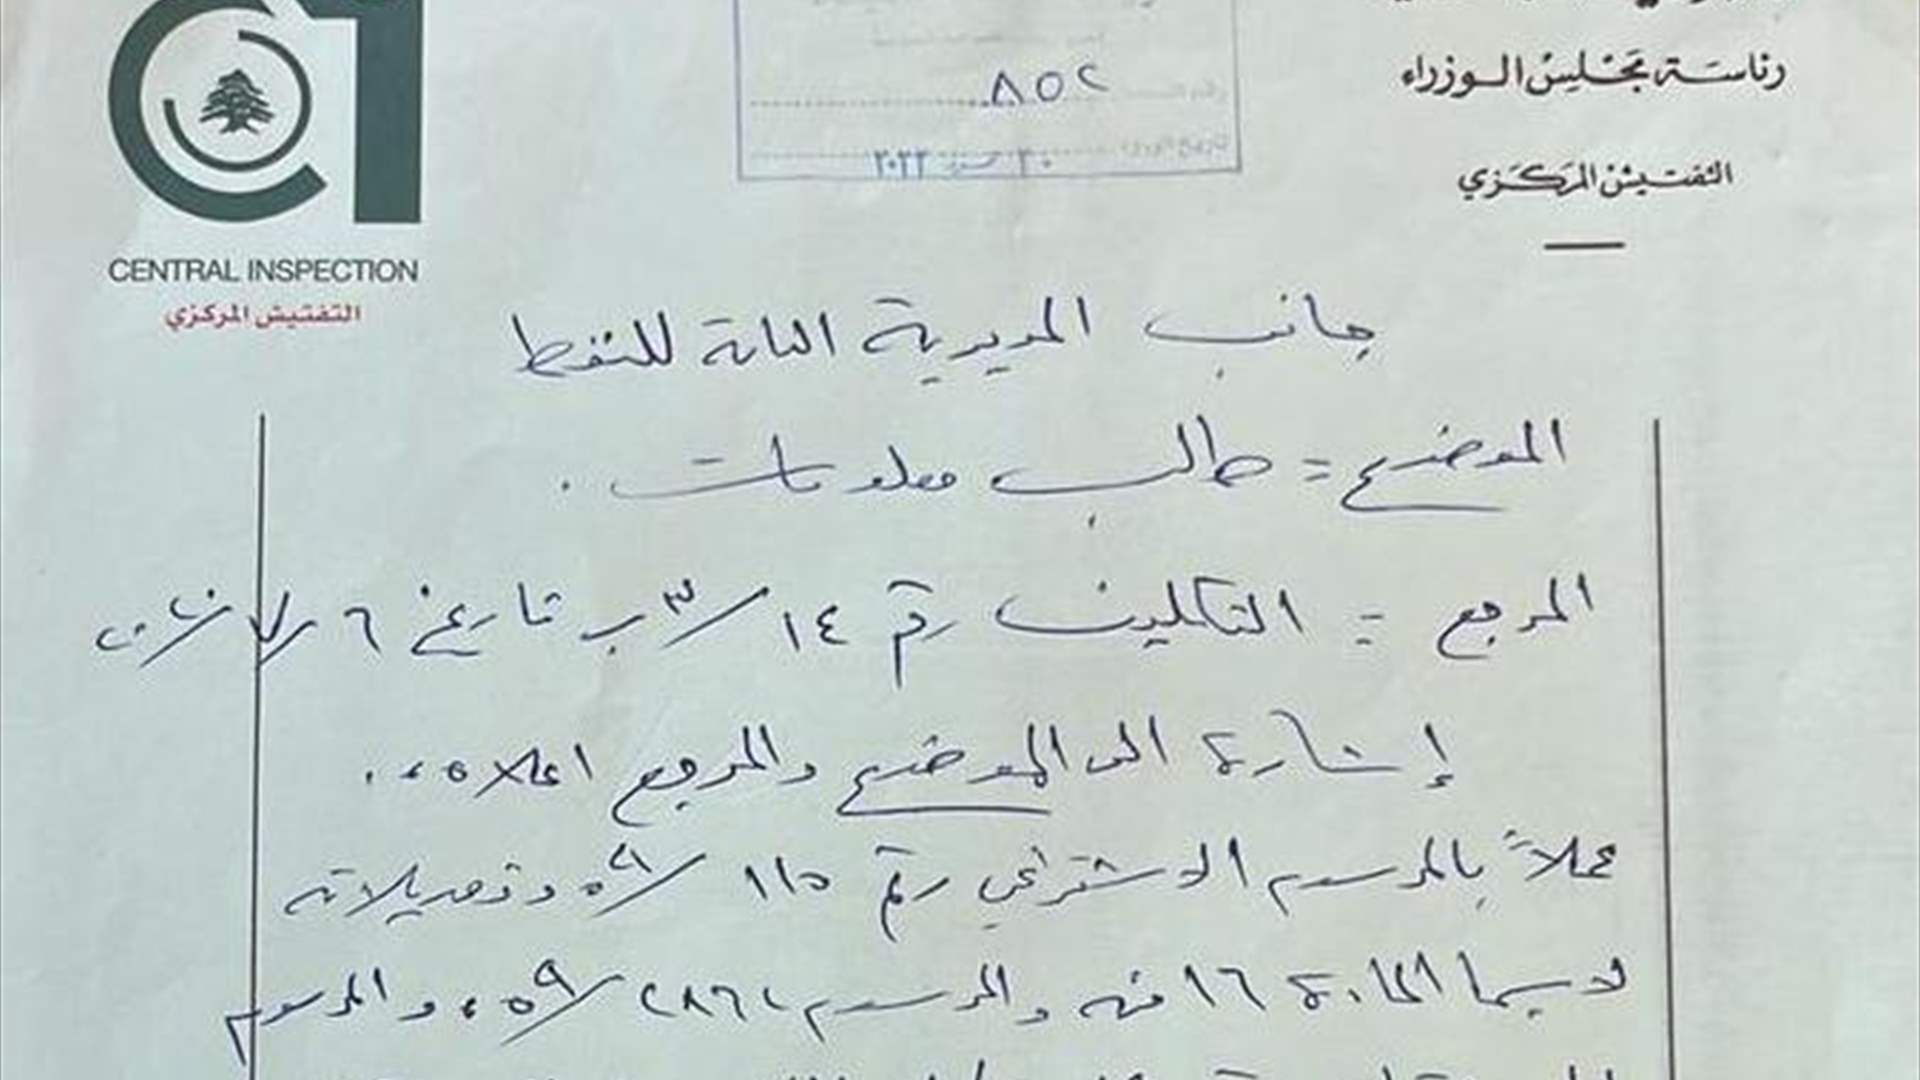 رئاسة مجلس الوزراء
التفتيش المركزي
٨٥٢
٢٠٢٢
CENTRAL INSPECTION
التفتيش المركزي
جانب المديرية العامة للنفط
الموضوع = طلب معلومات .
المرجع = التكليف رقم ١٤/ب٣ تاريخ ٦/٧/٢٠٢٠
إشارة الى الموضوع والمرجع اعلاه، .
عملاً بالمرسوم الاشتراعي رقم ١١٥/٥٩ وتعديلاته
لا سيما المادة ١٦ منه والمرسوم ٢٨٦٢/٥٩، والمرسوم